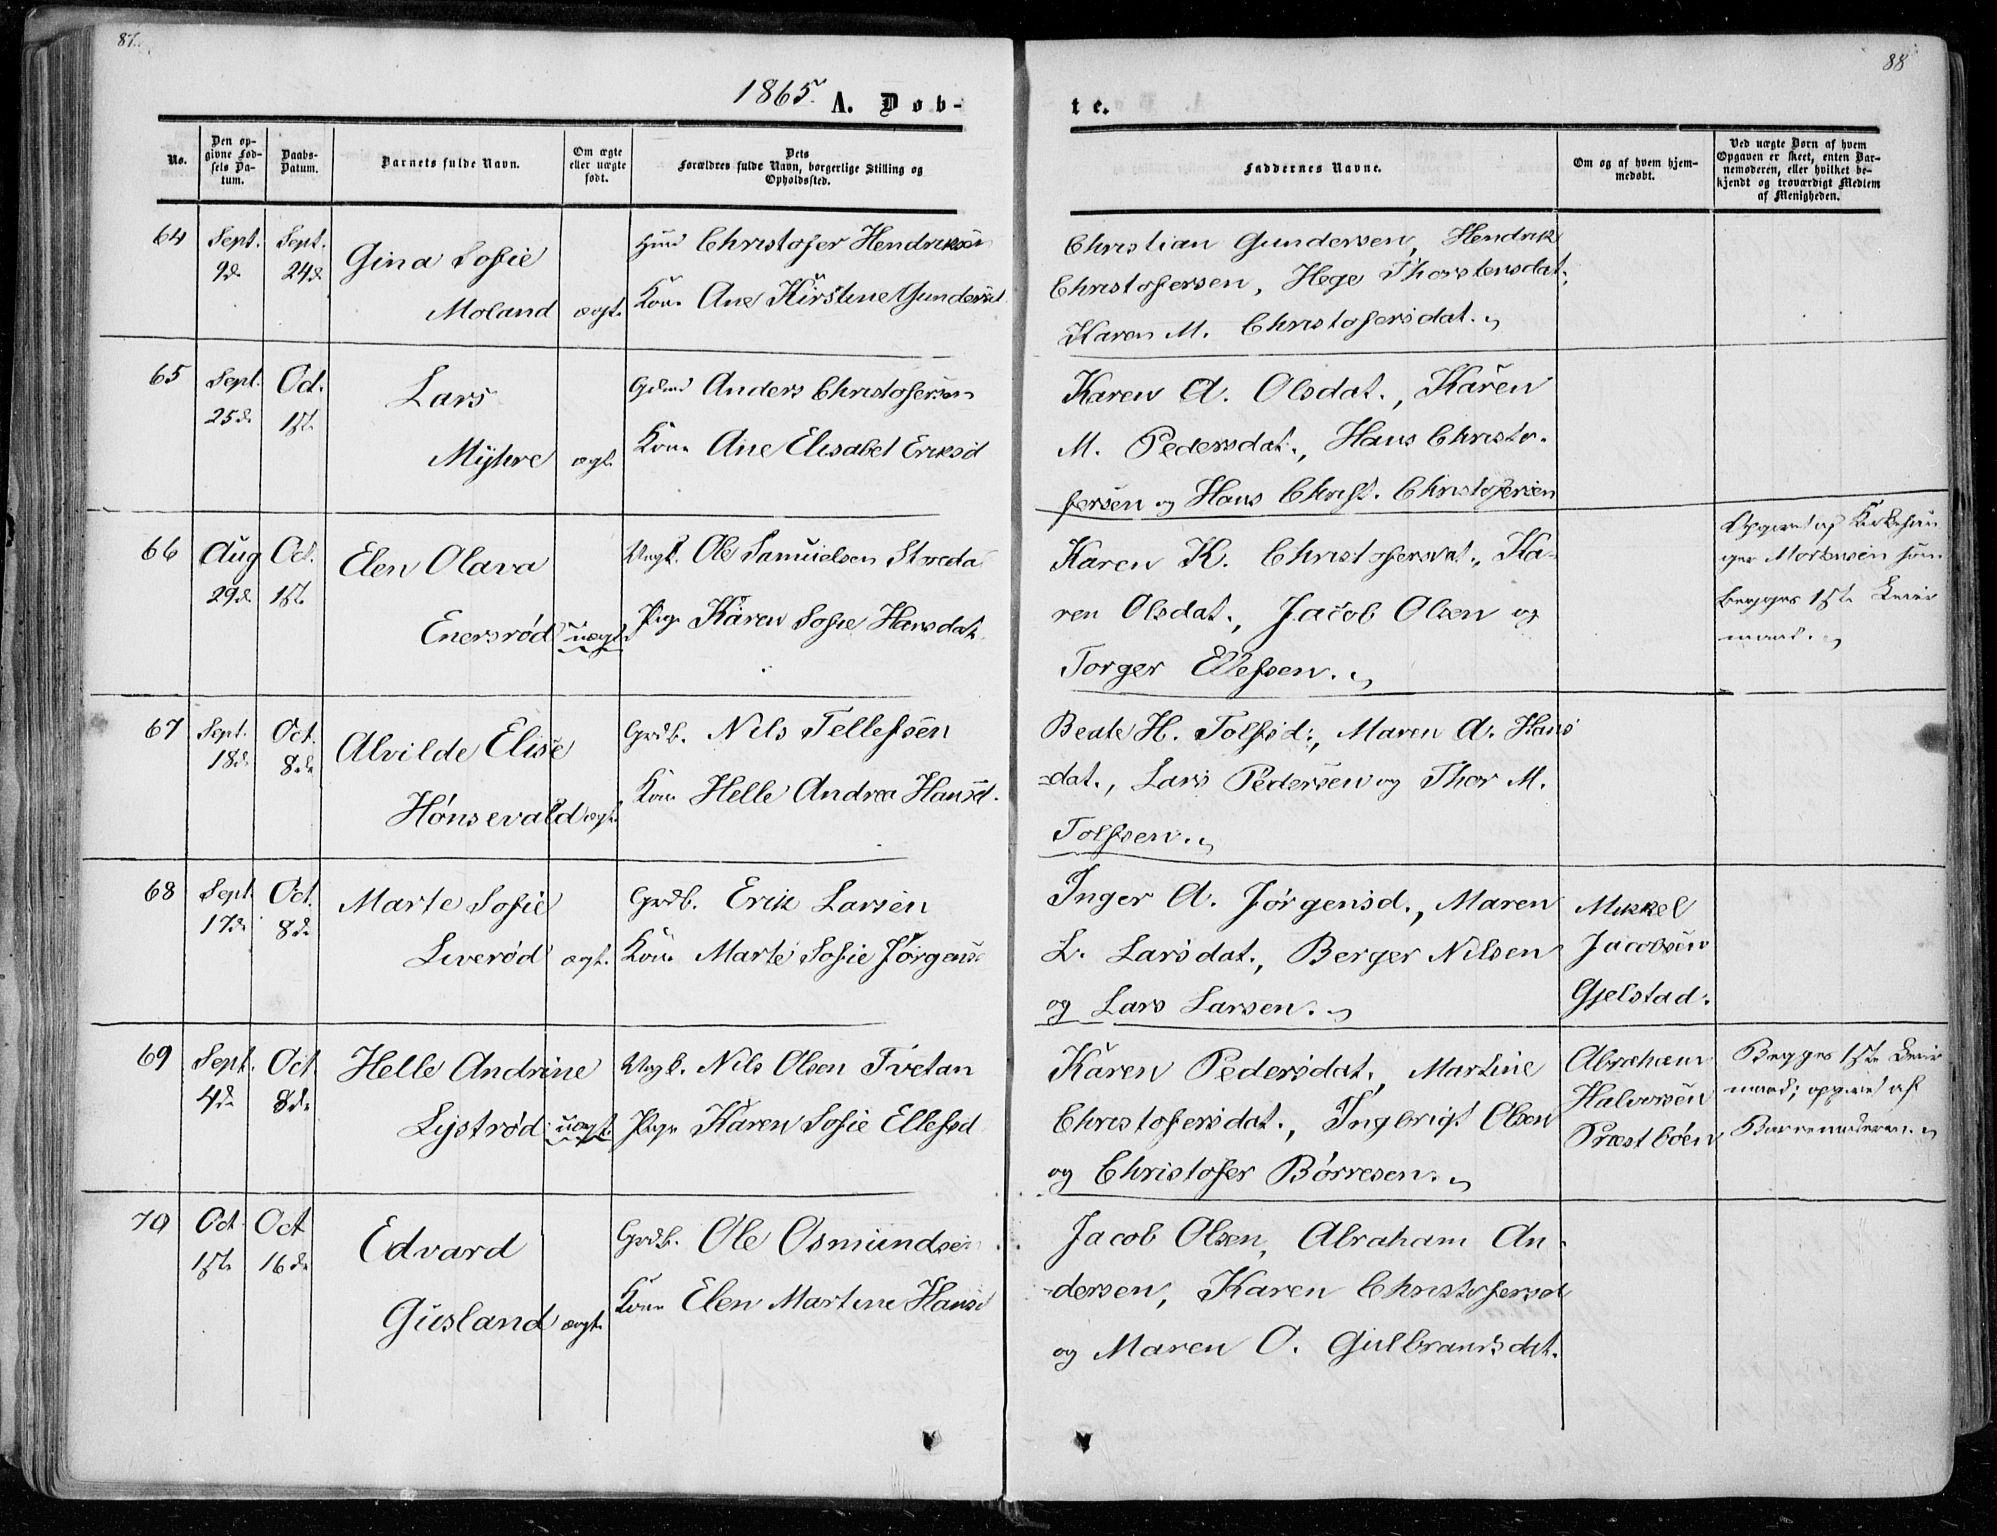 87.
88
1865.
A. Døb-
te.
No.
Den op-
givne Fød-
sels Da-
tum.
Daabs-
Datum.
Barnets fulde Navn.
Om ægte
eller uægte
født.
Dets
Forældres fulde Navn, borgerlige Stilling og
Opholdssted.
Faddernes Navne.
Om og af hvem hjem-
medøbt.
Ved uægte Børn af hvem
Opgaven er skeet, enten Bar-
nemoderen, eller hvilket be-
kjendt og troværdigt Medlem
af Menigheden.
64
Sept.
9de
Sept.
24de
Gina Sofie
Moland
ægt.
Christofer Hendriksen
Kone Ane Kirstine Gundersd.
Christian Gundersen, Hendrik
Christofersen, Hege Thorstensdat.
Karen M. Christofersdat.
65
Sept.
25de
Oct.
1ste
Lars
Myhre
ægt.
Anders Christofersen
Kone Ane Elisabet Eriksd
Karen A. Olsdat., Karen
M. Pedersdat., Hans Christo-
fersen og Hans Christ. Christofersen
66
Aug
29de
Oct.
1ste
Elen Olava
Enersrød
uægt.
Ungk. Ole Samuelsen Street
Pige Karen Sofie Hansdat.
Karen K. Christofersdat., Ka-
ren Olsdat., Jacob Olsen og
Torger Ellefsen.
Opgivet af Kirkesan-
ger Mortensen som
begges 1ste Leier-
maal.
67
Sept.
18de
Oct.
8de
Alvilde Elise
Hønsevald
ægt.
Grdb. Nils Tellefsen
Kone Helle Andrea Hansd.
Beate H. Tolfsd., Maren A. Hans
-dat., Lars Pedersen og Thor M.
Tolfsen.
68
Sept.
17de
Oct.
8de
Marte Sofie
Liverød
ægt.
Grdb. Erik Larsen
Kone Marte Sofie Jørgens
Inger A. Jørgensd., Maren
L. Larsdat., Berger Nilsen
og Lars Larsen.
Mikkel
Jacobsen
Gjelstad.
69
Sept.
4de
Oct.
8de
Helle Andrine
Lystrød
uægt.
Ungk. Nils Olsen Tvetan
Pige Karen Sofie Ellefsd
Karen Pedersdat., Martine
Christofersdat., Ingbrigt Olsen
og Christofer Børresen.
Abraham
Halvorsen
Præstbøen
Begges 1ste Leier-
maal; opgivet af
Barnemoderen.
70
Oct.
1ste
Oct
16de
Edvard
Gusland
ægt.
Grdb. Ole Osmundsen
Kone Elen Martine Hansd
Jacob Olsen, Abraham An-
-dersen, Karen Christofersd
og Maren O. Gulbrandsdat.